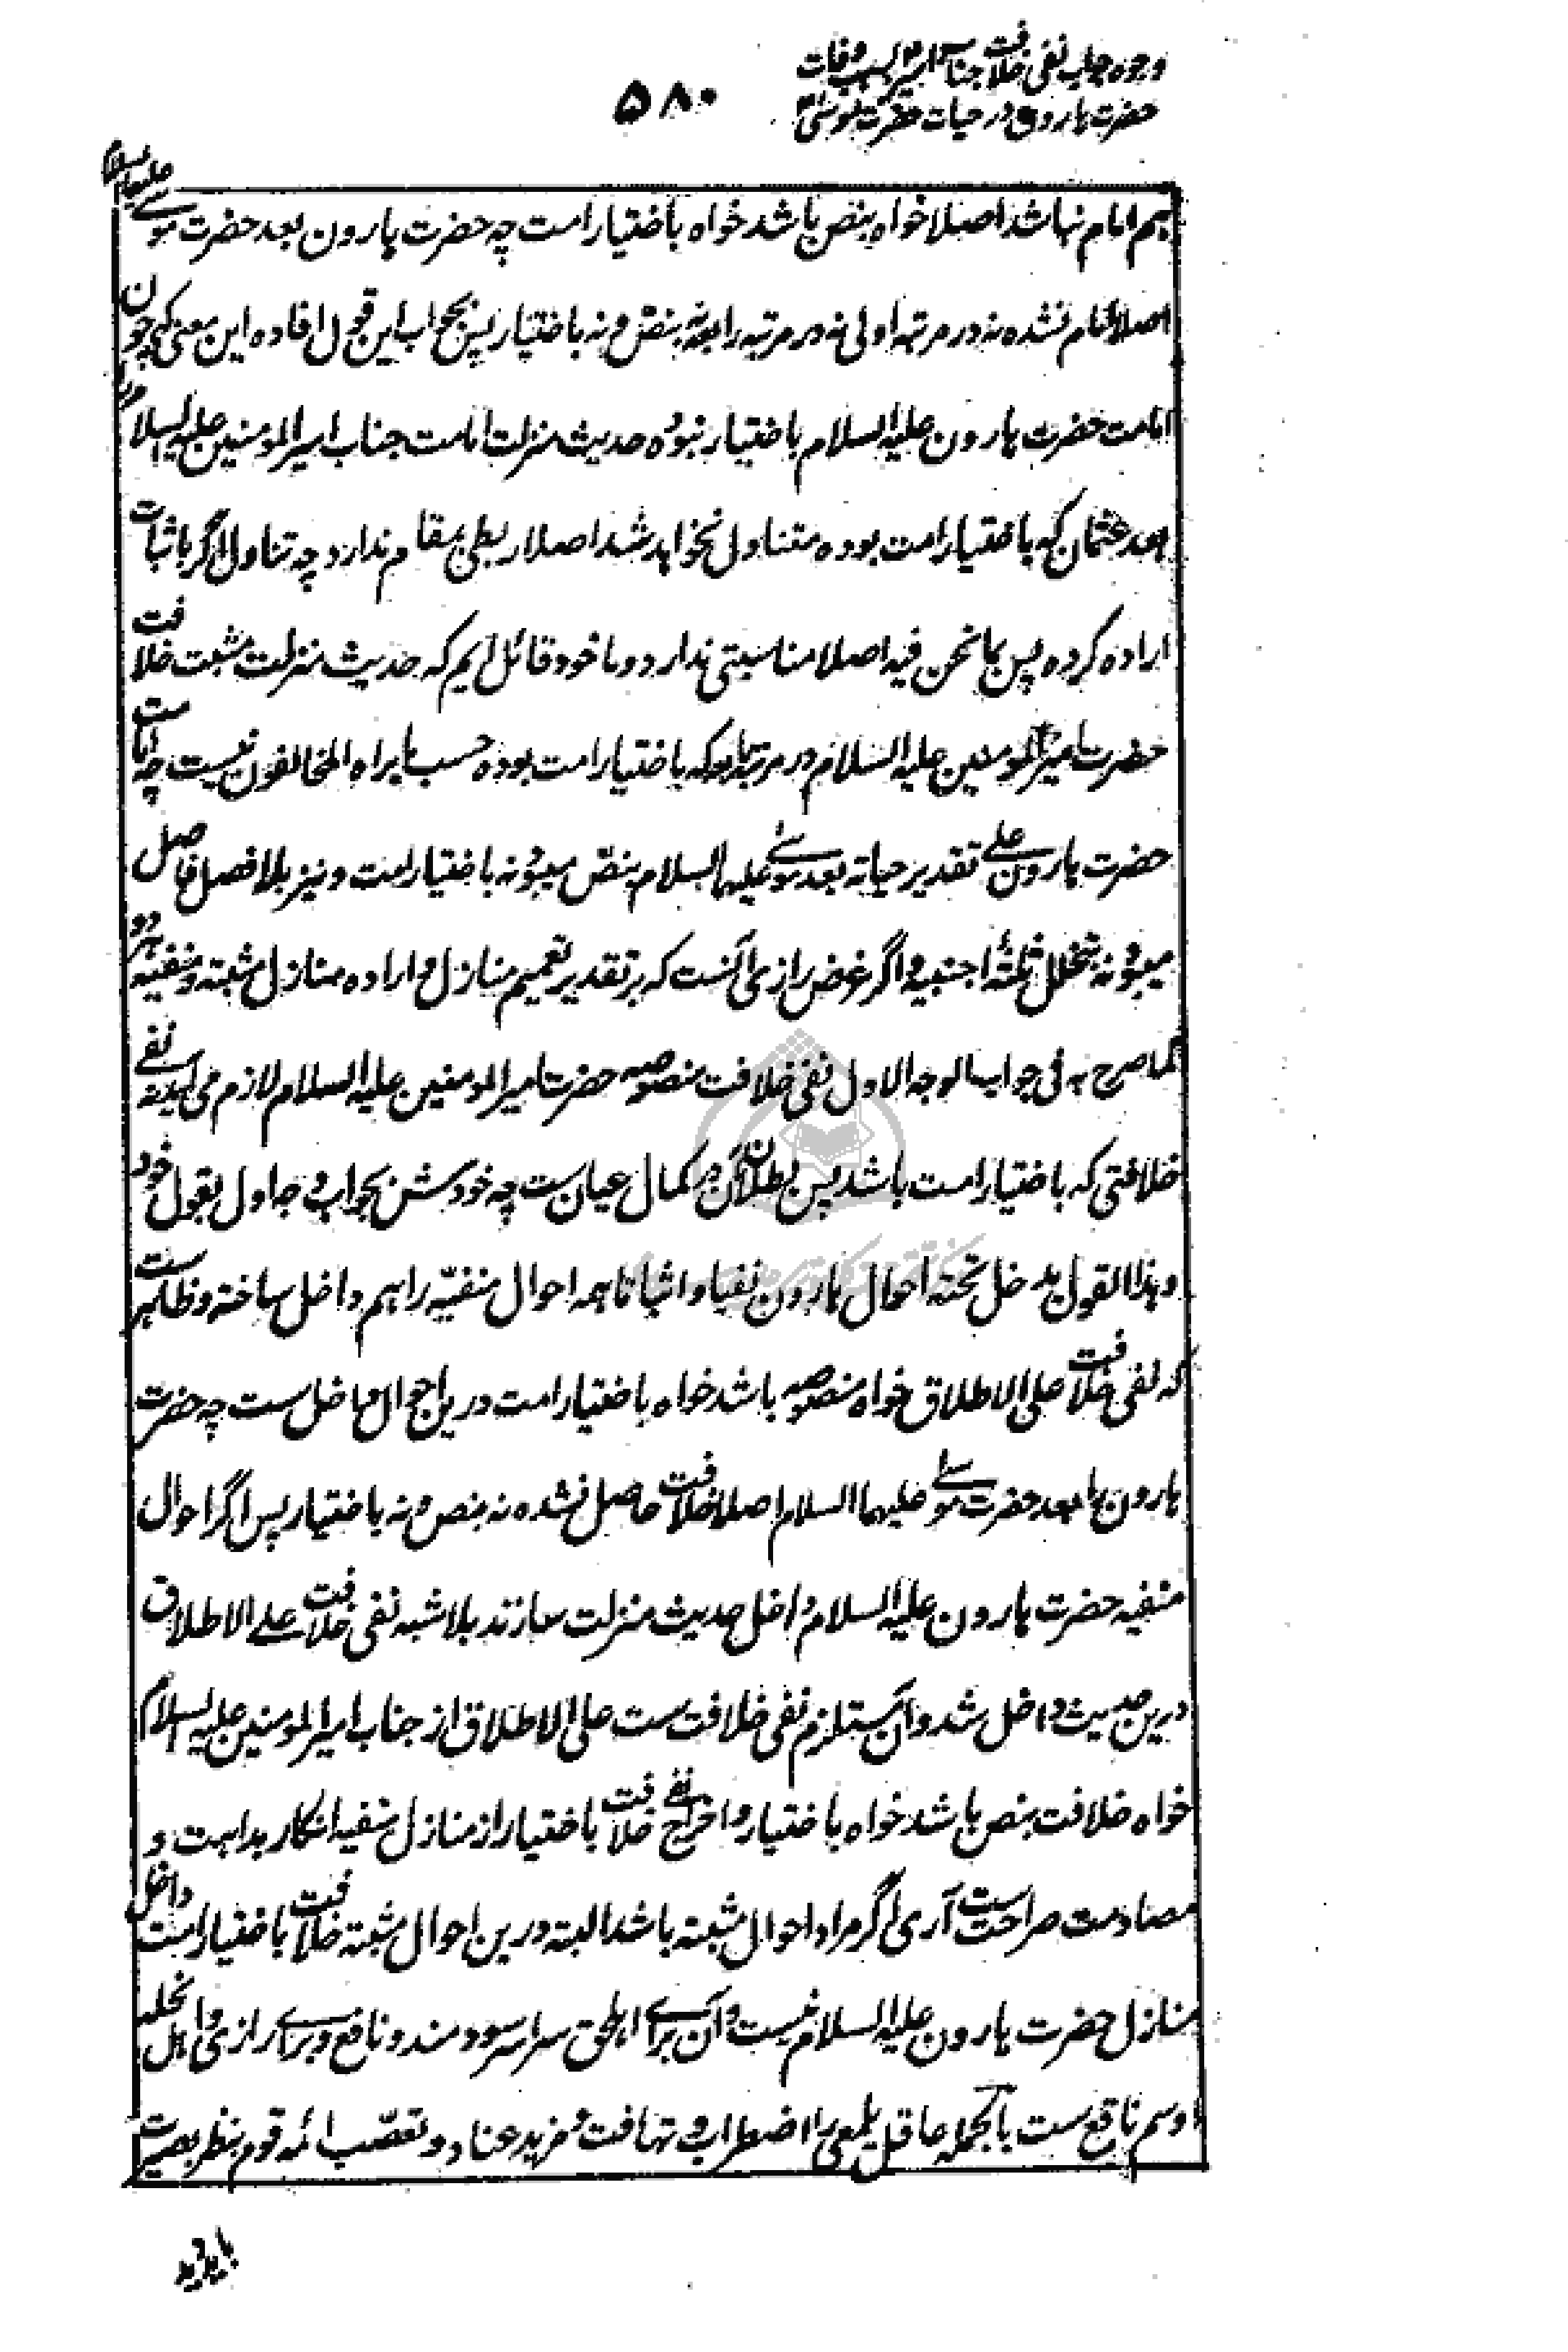 وجوه جواب نفی خلافت جناب امیر بسبب وفات
حضرت هارون در حیات حضرت موسیٰ
۵۸۰
هم امام نباشد اصلا خواه بنص باشد خواه باختیار امت چه حضرت هارون بعد حضرت موسے علیهما السلام
اصلا امام نشده نه در مرتبه اولی نه در مرتبه رابعه نه بنص و نه باختیار پس بجواب این قول افاده این معنی که چون
امامت حضرت هارون علیه السلام باختیار نبوده حدیث منزلت امامت جناب امیرالمومنین علیه السلام را
بعد عثمان که باختیار امت بوده متناول نخواهد شد اصلا ربطی بمقام ندارد چه تناول اگر باثبات
اراده کرده پس بما نحن فیه اصلا مناسبتی ندارد و ما خود قائل ایم که حدیث منزلت مثبت خلافت
حضرت امیرالمومنین علیه السلام در مرتبه رابعه که باختیار امت بوده حسب ما یراه المخالفون نیست چه امامت
حضرت هارون علے تقدیر حیاته بعد موسے علیهما السلام بنص میبود نه باختیار امت و نیز بلا فصل فاصل
میبود نه بتخلل ثلثهٔ اجنبیه و اگر غرض رازی آنست که بر تقدیر تعمیم منازل و اراده منازل مثبته و منفیه هر دو
کما صرح به فی جواب الوجه الاول نفی خلافت منصوصه حضرت امیرالمومنین علیه السلام لازم می آید نه نفے
خلافتی که باختیار امت باشد پس بطلان آن در کمال عیان ست چه خودش بجواب وجه اول بقول خود
و هذا القول یدخل تحته احوال هارون نفیا و اثباتا همه احوال منفیّه را هم داخل ساخته و ظاهرست
که نفی خلافت علی الاطلاق خواه منصوصه باشد خواه باختیار امت درین احوال داخل ست چه حضرت
هارون را بعد حضرت موسے علیهما السلام اصلا خلافت حاصل نشده نه بنص و نه باختیار پس اگر احوال
منفیه حضرت هارون علیه السلام داخل حدیث منزلت سازند بلا شبه نفی خلافت علے الاطلاق
درین حدیث داخل شد و آن مستلزم نفی خلافت ست علی الاطلاق از جناب امیرالمومنین علیه السلام
خواه خلافت بنص باشد خواه باختیار و اخراج نفے خلافت باختیار از منازل منفیه انکار بداهت و
مصادمت صراحت ست آری اگر مراد احوال مثبته باشد البته درین احوال مثبته خلافت باختیار امت داخل
منازل حضرت هارون علیه السلام نیست و آن برای اهل حق سراسر سودمند و نافع و برای رازی و اهل نحله
او سم ناقع ست بالجمله عاقل یلمعی را اضطراب و تهافت و مزید عناد و تعصّب ائمه قوم بنظر بصیرت
باید دید